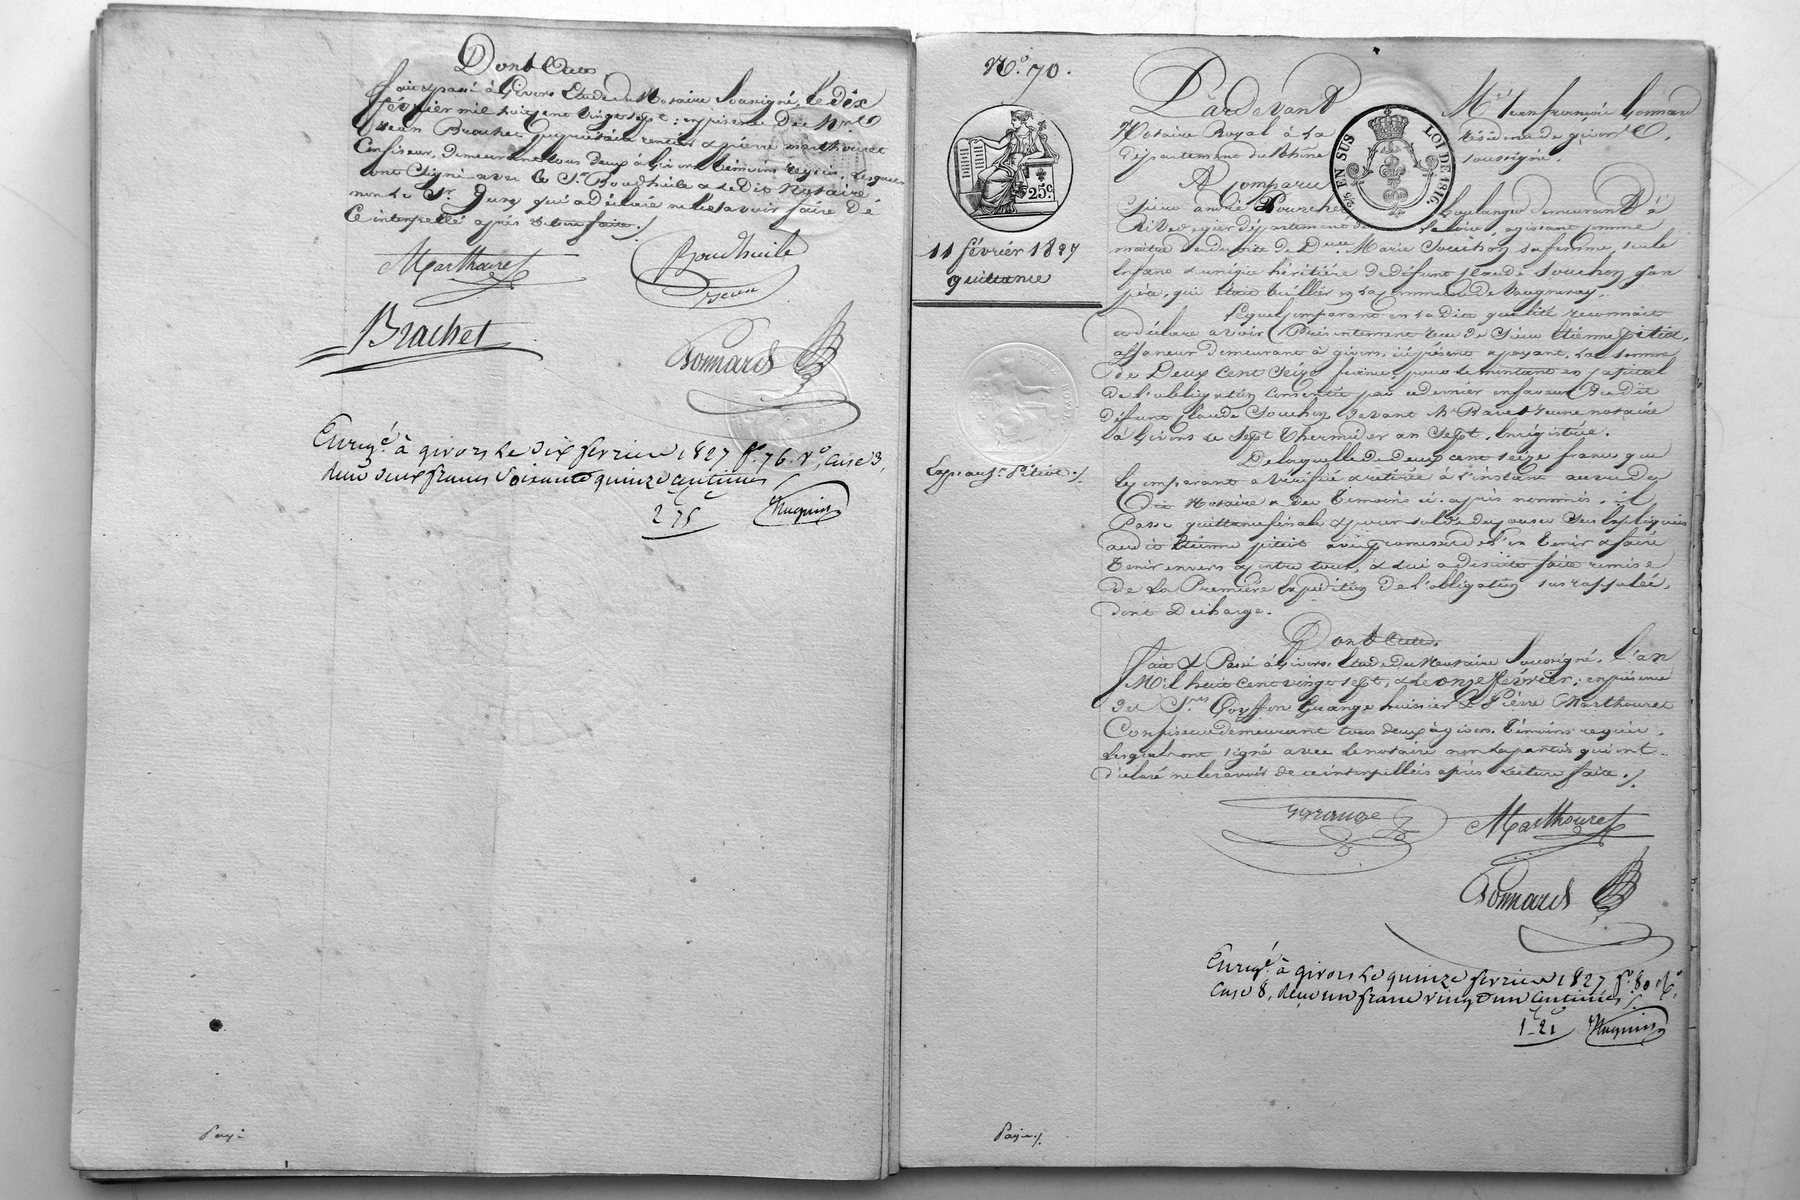 Dont Acte
fait et passé à Givors Etude du Notaire soussigné, le dix
février mil huit cent vingt sept; en présence de
Jean Brachet propriétaire rentier & pierre marthouret
Confiseur, demeurant tous deux à Givors témoins requis, lesquels
ont signé avec le Sr. Boudhuile & ledit Notaire
non le Sr. qui a déclaré ne le savoir faire de
ce interpellé après lecture faite./
Marthouret
Boudhuile
Brachet
Bonnard
Enregé. à givors le dix fevrier 1827 fo. 76. Vo, Case 3,
deux francs soixante quinze centimes
2 75
Pay-
No. 70.
25c.
11 février 1827
quittance
Exp au Sr. Pitiot./.
Pardevant Me. Jean françois Bonnard
Notaire Royal à la résidence de givors
département du Rhône soussigné.
A Comparu
Sieur andré Pourchet boulanger demeurant à
Rivedegier département de la loire, agissant comme
maître des droits de Dme. Marie Souchon sa femme, seule
Enfant & unique héritière de défunt Claude Souchon son
père, qui était tuillier en la commune de Vaugneray.
24 EN SUS
LOI DE 1816.
Lequel comparant en sa dite qualité reconnait
et déclare avoir Présentement reçu de Sieur étienne pitiot,
affaneur demeurant à givors, ici présent & payant, la somme
de Deux Cent Seize francs, pour le montant en capital
de l'obligation consentie par ce dernier en faveur du dit
défunt Claude Souchon, devant Me. jeune notaire
à Givors le Sept thermidor an Sept, enrégistrée.
De laquelle de deux cent seize francs que
le comparant a vérifiée & retirée à l'instant au vu du
dit Notaire & des témoins ci-après nommés, il
Passe quittance finale & pour solde
audit étienne pitiot avec promesse de l'en tenir & faire
tenir envers & contre tous, & lui a desuite faite remise
de la Première Expédition de l'obligation susrappelée,
dont Décharge.
Dont Acte.
fait & Passé à Givors, Etude du Notaire Soussigné, l'an
Mil huit cent vingt sept, & le onze février; en présence
des Srs. Goyffon Grange huissier & Pierre Marthouret
Confiseur demeurant tous deux à givors, témoins requis,
lesquels ont signé avec le notaire non les parties qui ont
déclaré ne le savoir de ce interpellées après lecture faite./
Grange
Marthouret
Bonnard
Enregé. à givors le quinze fevrier 1827 fo. 80 Vo.
Case 8, reçu un franc vingt un centimes
1-21
Paye/.